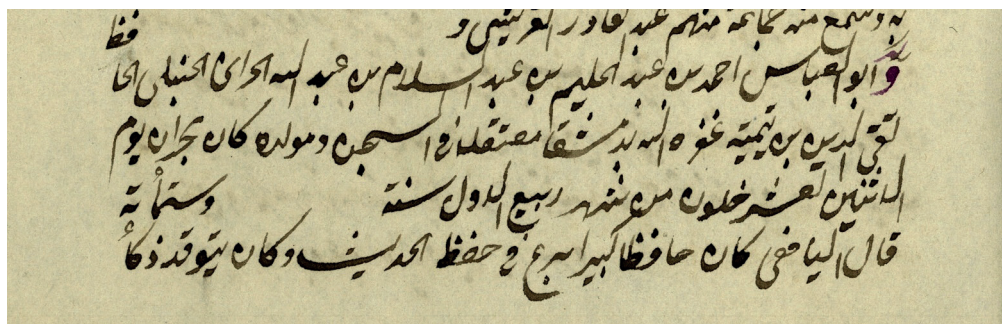 وسمع منه جماعة منهم عبد القادر القرشي و
فظ
وابو العباس احمد بن عبد الحليم بن عبد السلام بن عبد الله الحراني الحنبلي الحا
تقي الدين بن تيمية غفره الله بدمشق معتقلا في السجن ومولده كان بحران يوم
الاثنين لعشر خلون من شهر ربيع الاول سنة وستمأته
قال اليافعي كان حافظا كبيرا برع في حفظ الحديث وكان يتوقد ذكأ